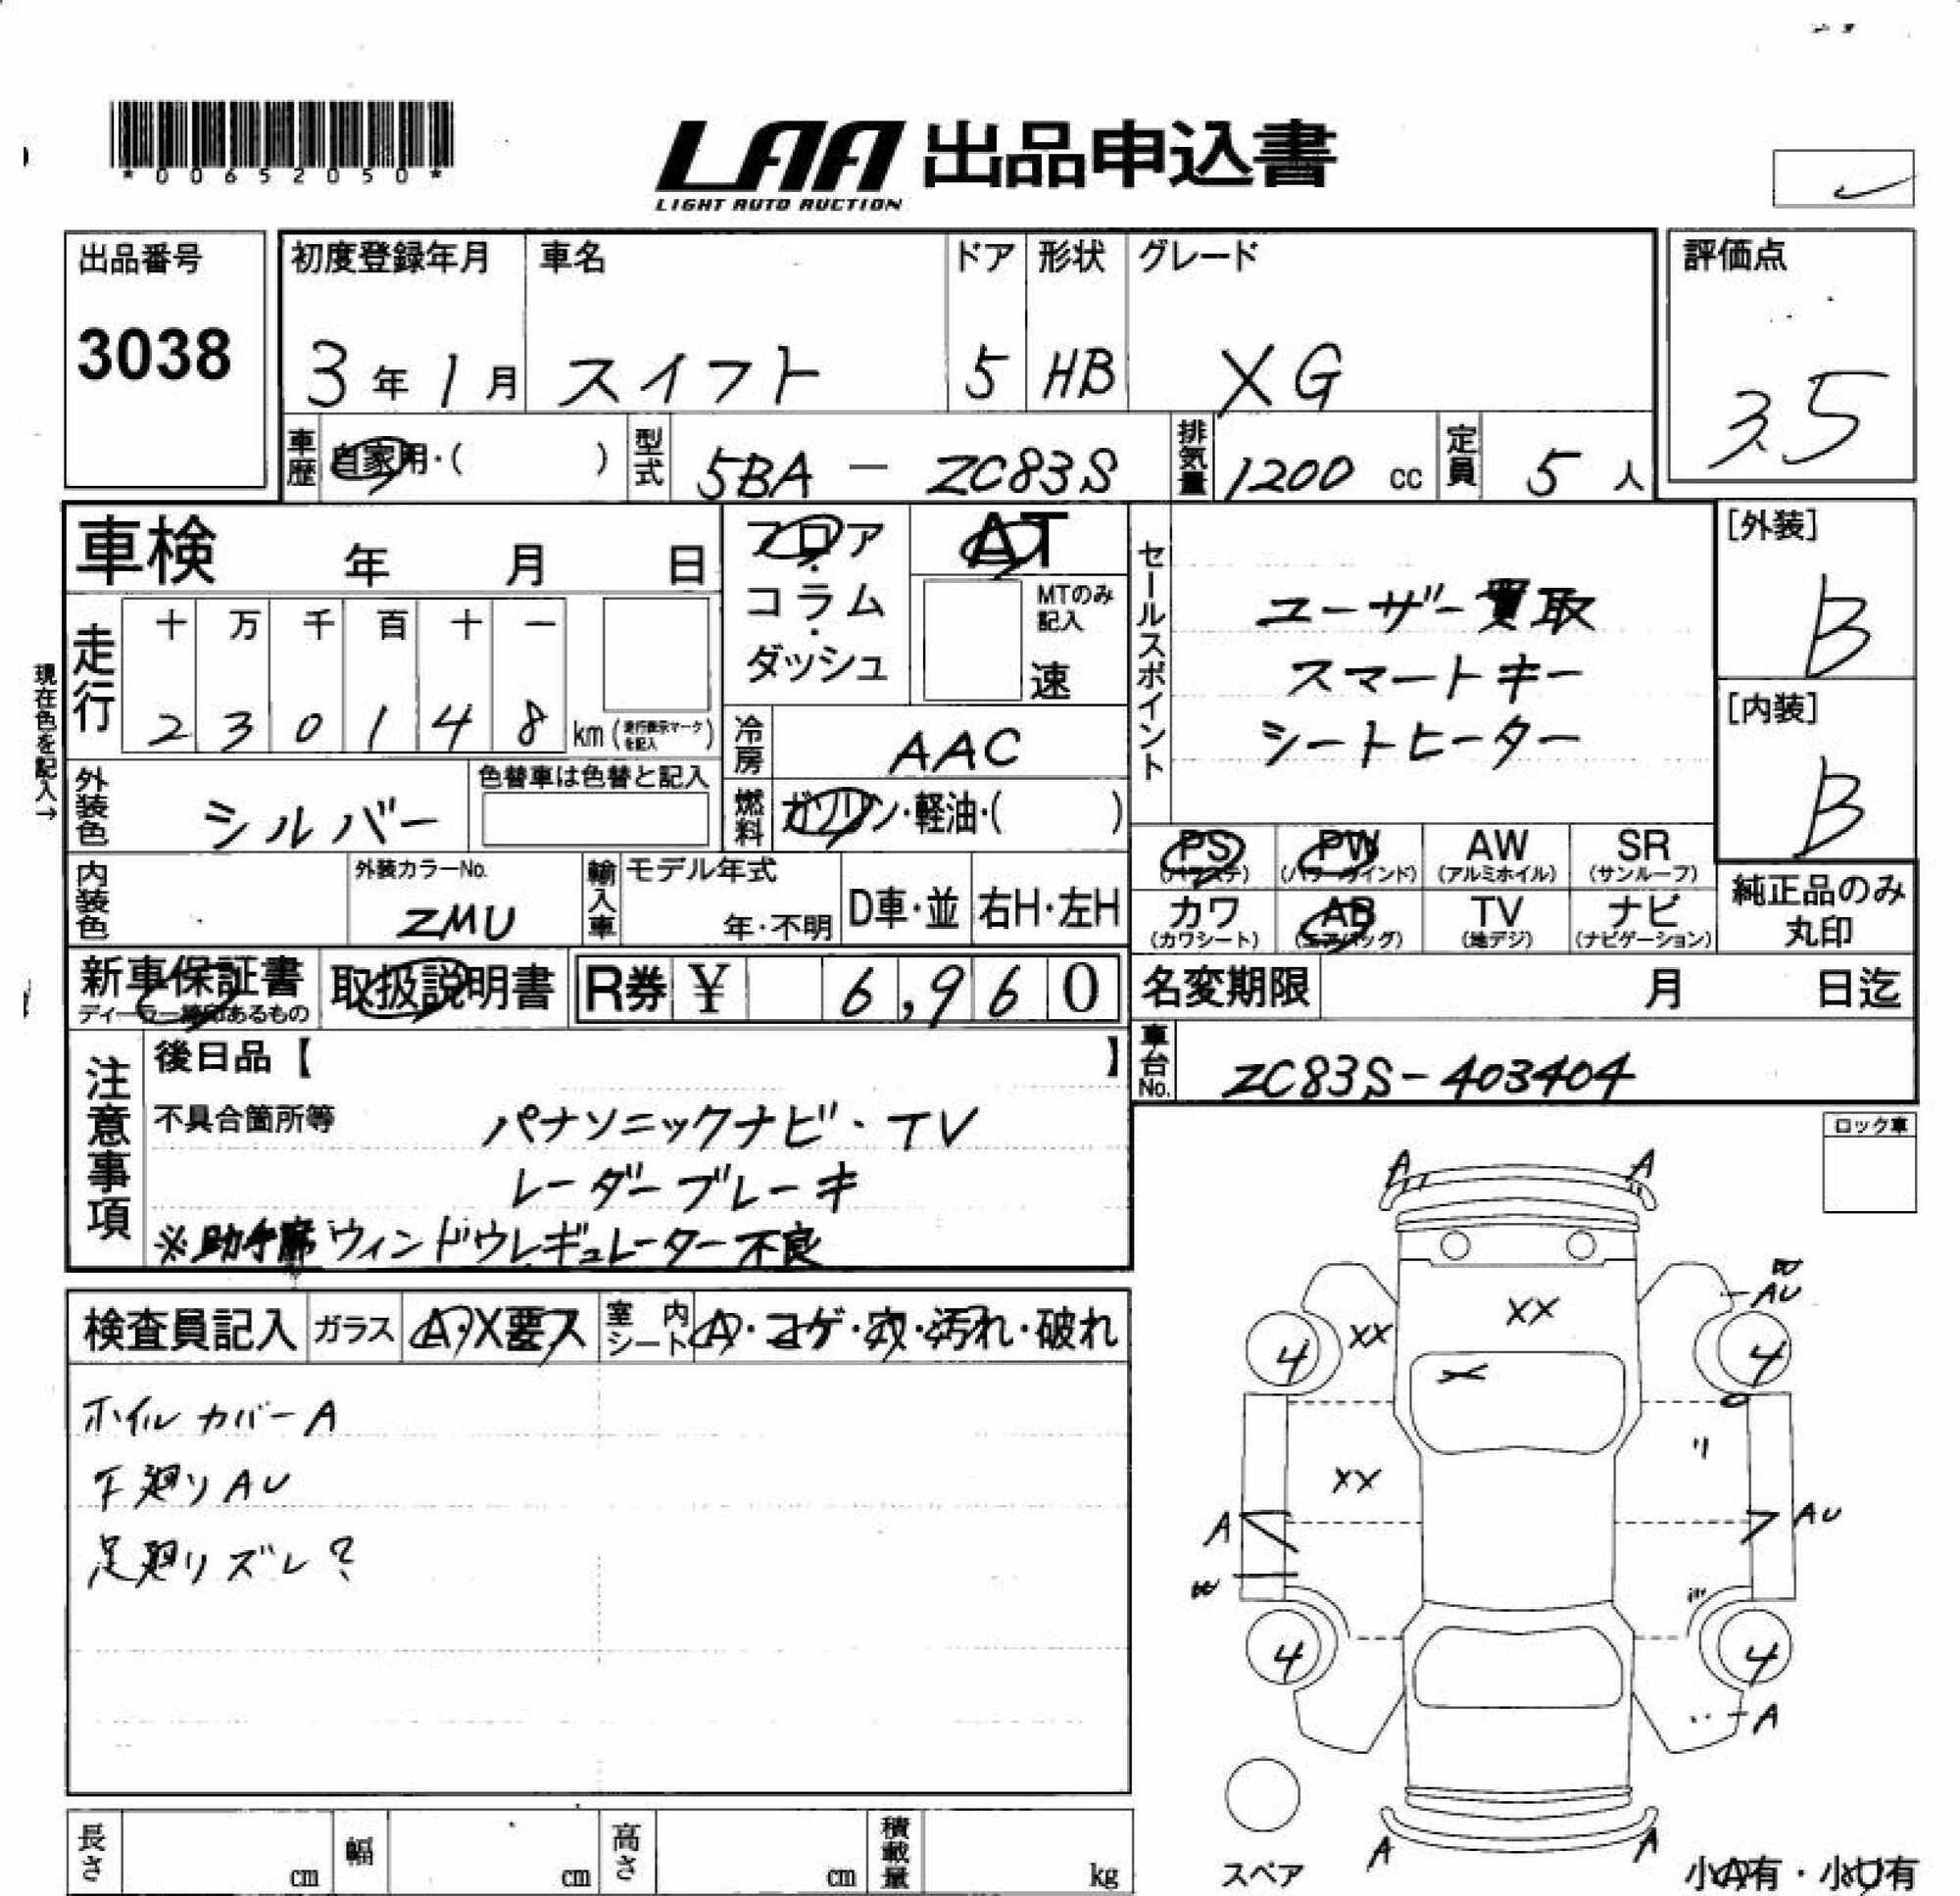 *00652050*
LAA 出品申込書
LIGHT AUTO AUCTION
出品番号
3038
初度登録年月
3年1月
車名
スイフト
ドア
5
形状
HB
グレード
XG
評価点
3.5
車歴
自家用・( )
型式
5BA - ZC83S
排気量
1200 cc
定員
5 人
車検 年 月 日
フロア・コラム・ダッシュ
AT
MTのみ記入
速
セールスポイント
ユーザー買取
スマートキー
シートヒーター
[外装]
B
[内装]
B
現在色を記入→
走行
十 万 千 百 十 一
2 3 0 1 4 8 km (走行表示マークを記入)
冷房
AAC
外装色
シルバー
色替車は色替と記入
燃料
ガソリン・軽油・( )
PS (パワステ)
PW (パワーウインド)
AW (アルミホイル)
SR (サンルーフ)
カワ (カワシート)
AB (エアバッグ)
TV (地デジ)
ナビ (ナビゲーション)
純正品のみ丸印
内装色
外装カラーNo.
ZMU
輸入車
モデル年式
年・不明
D車・並
右H・左H
新車保証書
取扱説明書
R券 ¥ 6,960
名変期限 月 日迄
車台No.
ZC83S-403404
注意事項
後日品【 】
不具合箇所等
パナソニックナビ・TV
レーダーブレーキ
※助手席ウィンドウレギュレーター不良
ロック車
検査員記入
ガラス
A・X要ス
室内シート
A・コゲ・穴・汚れ・破れ
ホイルカバーA
下廻りAU
足廻りズレ?
A A
AU
XX
XX
4 4
X
XX
A
AU
4 4
A
A A
スペア
小A有・小U有
長さ cm
幅 cm
高さ cm
積載量 kg